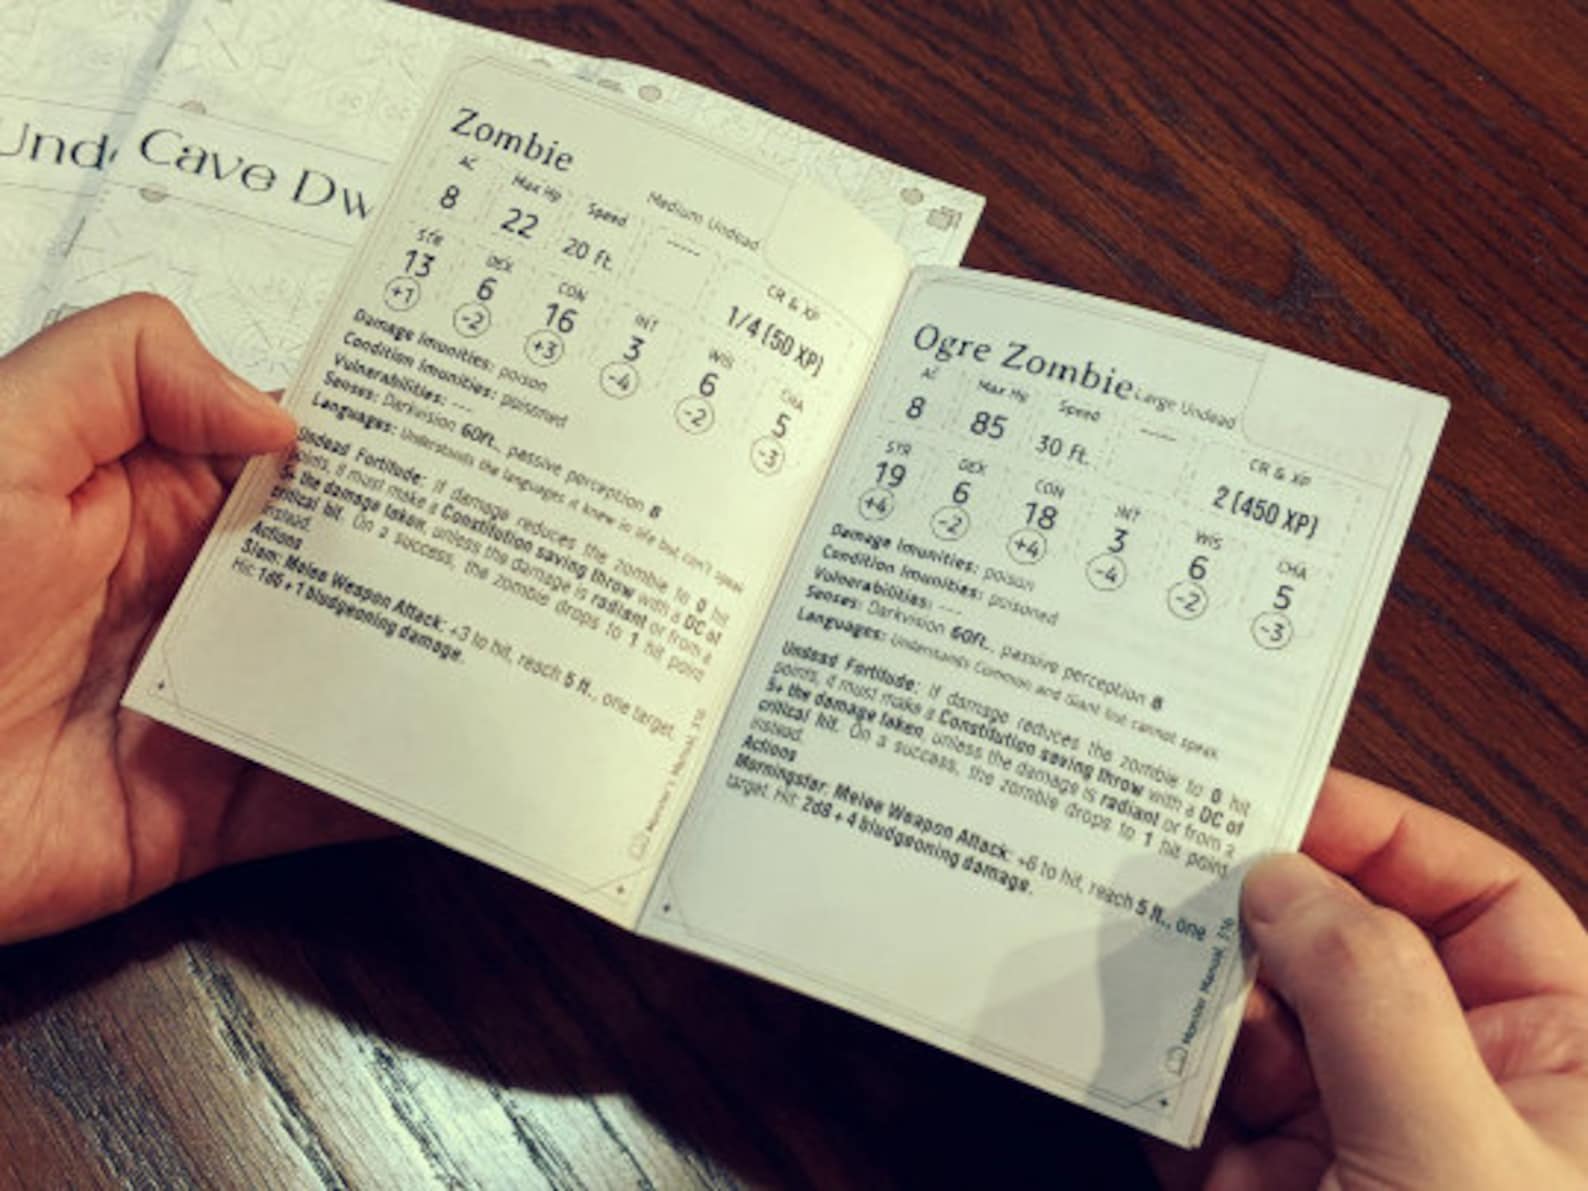 Und
Cave Dw
Zombie
Medium Undead
AC
Max Hp
Speed
----
CR & XP
8
22
20 ft.
1/4 (50 XP)
STR
DEX
CON
INT
WIS
CHA
13
6
16
3
6
5
+1
-2
+3
-4
-2
-3
Damage Imunities: poison
Condition Imunities: poisoned
Vulnerabilities: ---
Senses: Darkvision 60ft., passive perception 8
Languages: Understands the languages it knew in life but can't speak
Undead Fortitude: if damage reduces the zombie to 0 hit
points, it must make a Constitution saving throw with a DC of
5+ the damage taken, unless the damage is radiant or from a
critical hit. On a success, the zombie drops to 1 hit point
instead.
Actions
Slam: Melee Weapon Attack: +3 to hit, reach 5 ft., one target.
Hit: 1d6 + 1 bludgeoning damage.
Monster Manual, 316
Ogre Zombie
Large Undead
AC
Max Hp
Speed
----
CR & XP
8
85
30 ft.
2 (450 XP)
STR
DEX
CON
INT
WIS
CHA
19
6
18
3
6
5
+4
-2
+4
-4
-2
-3
Damage Imunities: poison
Condition Imunities: poisoned
Vulnerabilities: ---
Senses: Darkvision 60ft., passive perception 8
Languages: Understands Common and Giant but cannot speak
Undead Fortitude: if damage reduces the zombie to 0 hit
points, it must make a Constitution saving throw with a DC of
5+ the damage taken, unless the damage is radiant or from a
critical hit. On a success, the zombie drops to 1 hit point
instead.
Actions
Morningstar: Melee Weapon Attack: +6 to hit, reach 5 ft., one
target. Hit: 2d8 + 4 bludgeoning damage.
Monster Manual, 316